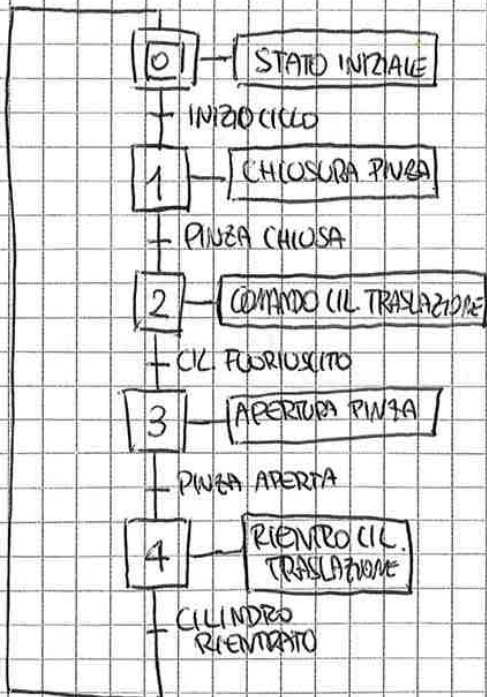 0 STATO INIZIALE
INIZIO CICLO
1 CHIUSURA PINZA
PINZA CHIUSA
2 COMANDO CIL. TRASLAZIONE
CIL. FUORIUSCITO
3 APERTURA PINZA
PINZA APERTA
4 RIENTRO CIL.
TRASLAZIONE
CILINDRO
RIENTRATO